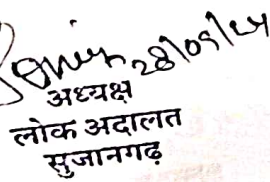 28/09/24
अध्यक्ष
लोक अदालत
सुजानगढ़